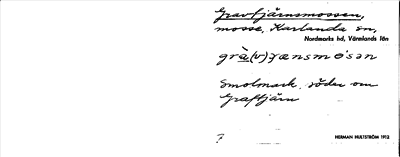 Gravtjärnsmossen,
mosse, Karlanda sn,
Nordmarks hd, Värmlands län
grà(v)ꞔænsmo`sən
Smolmark, söder om
Graftjärn
?
HERMAN HULTSTRÖM 1912